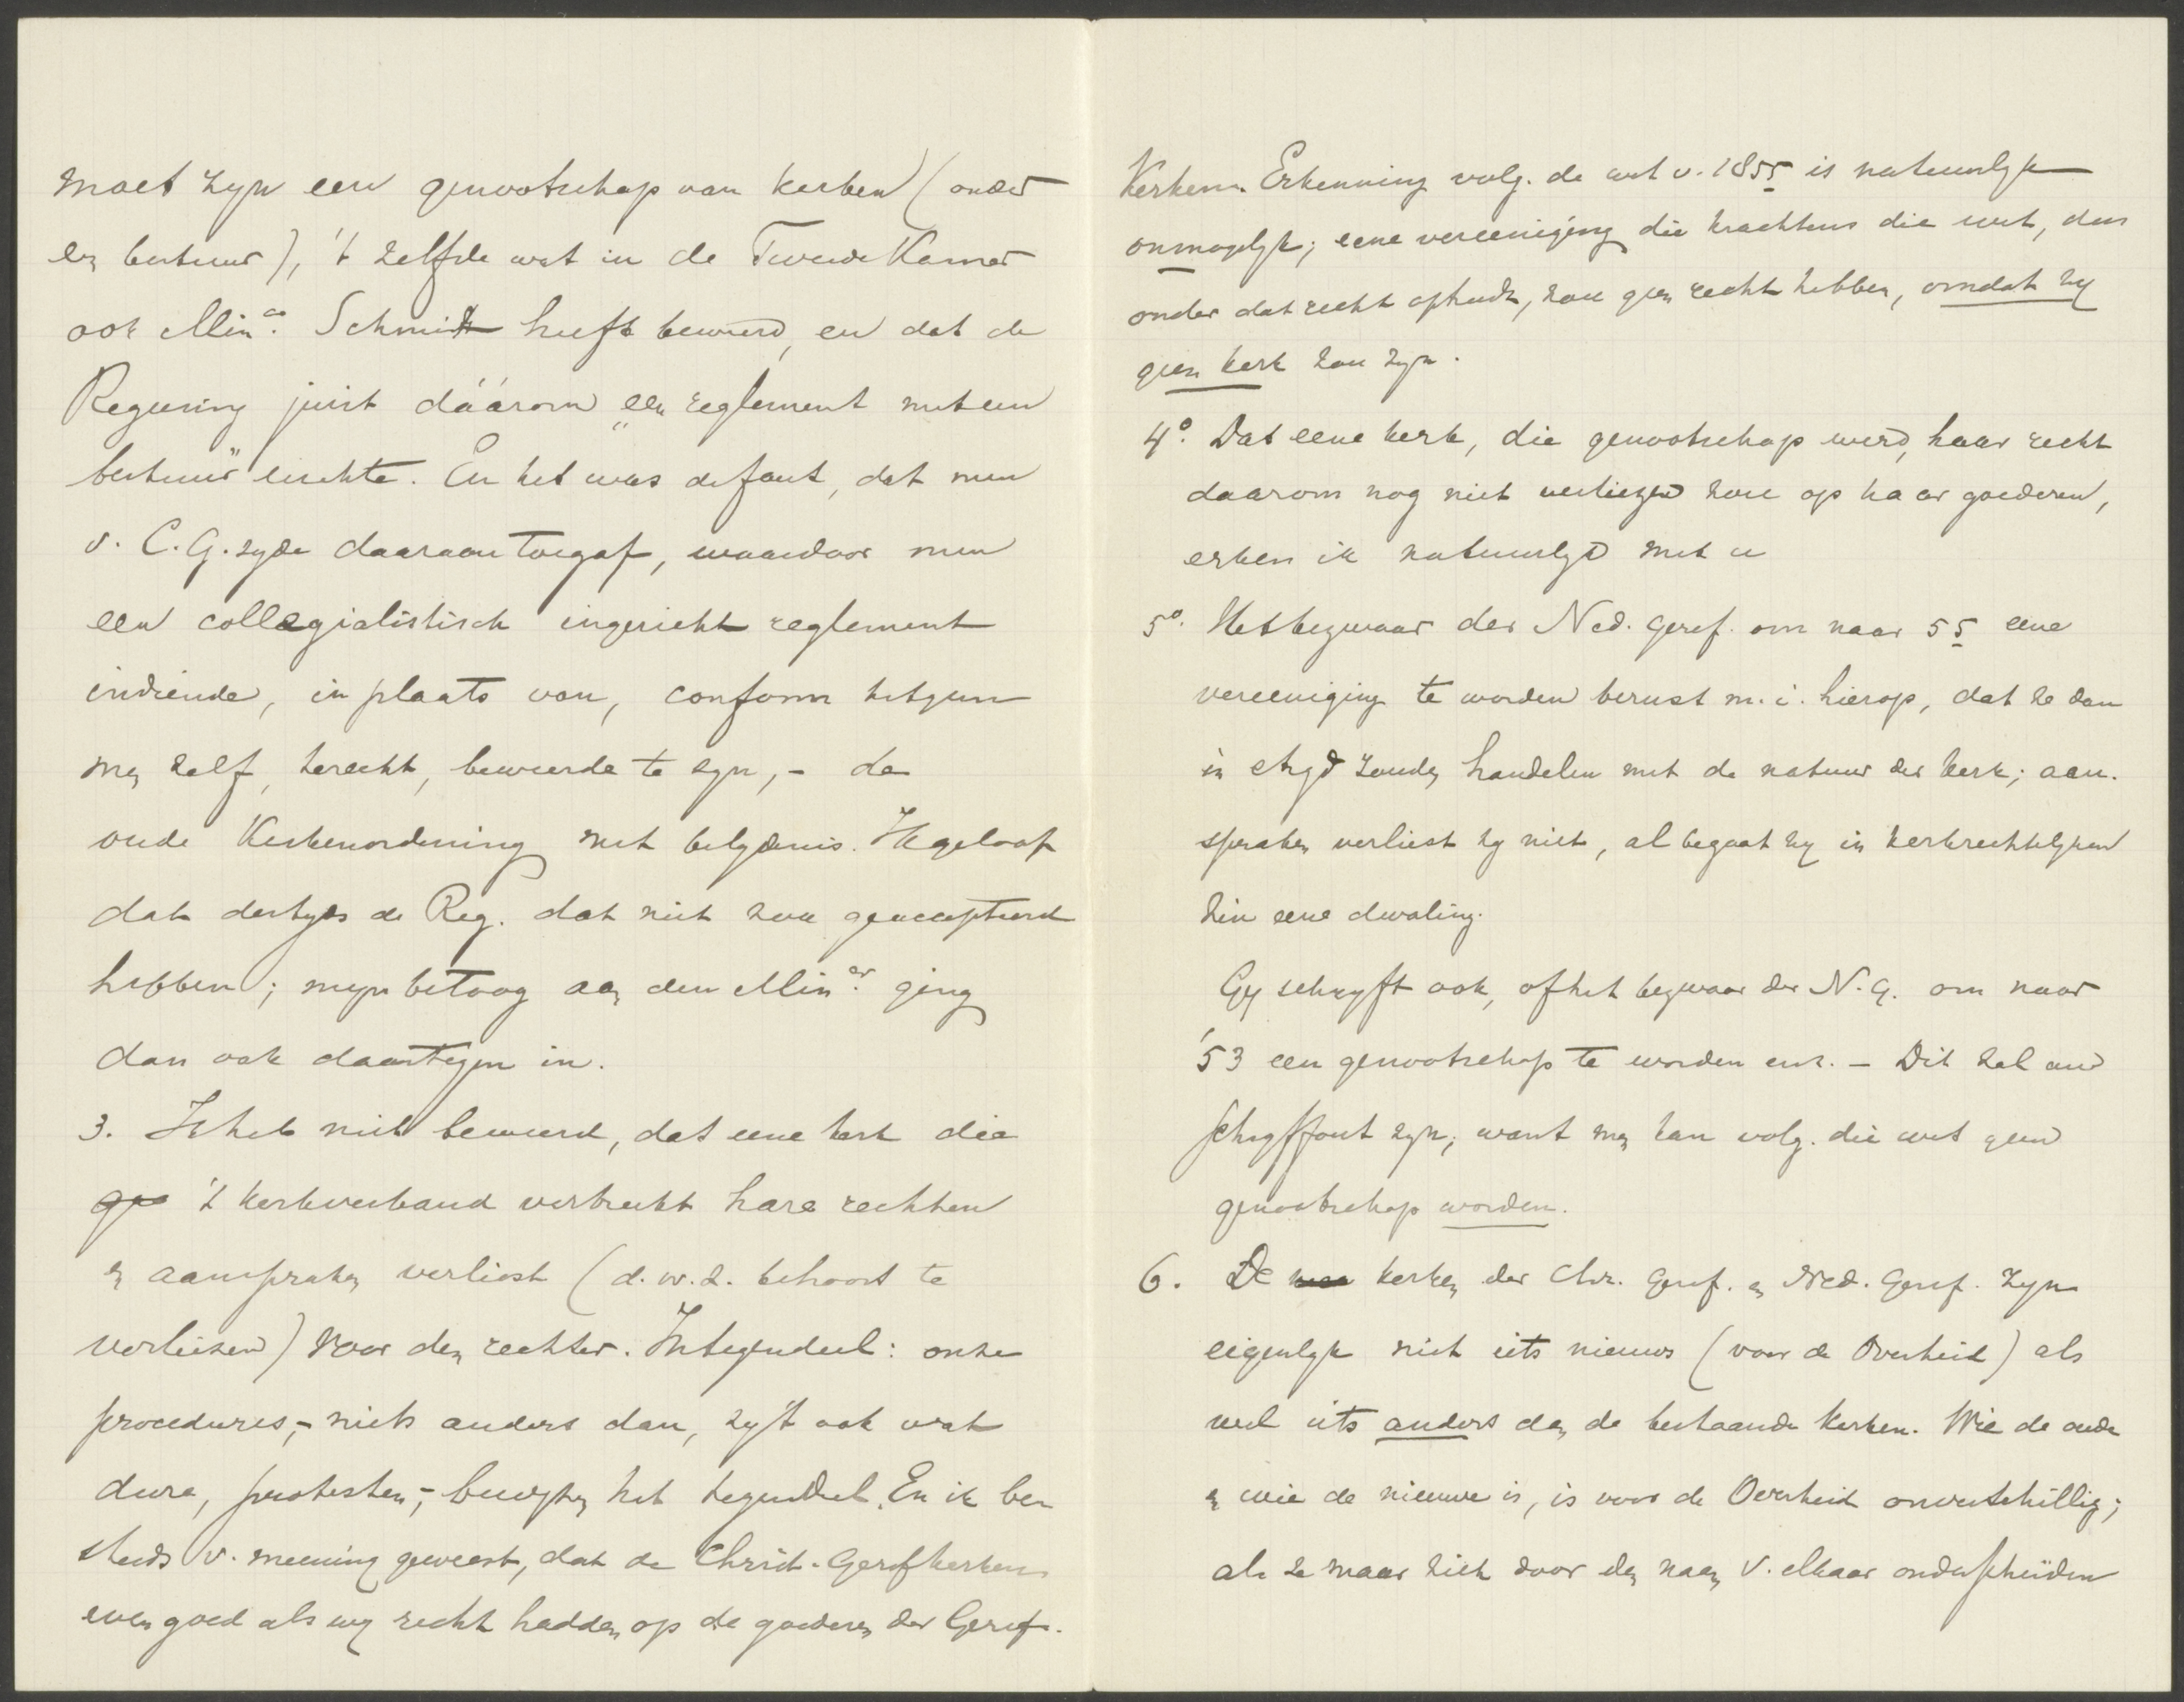 moet zyn een genootschap van kerken (onder
een bestuur), 't zelfde wat in de Tweede Kamer
ook Min.er Schmidt heeft beweerd, en dat de
Regeering juist dáárom "een reglement met een
bestuur" eischte. En het was de fout, dat men
v. C.G. zyde daaraan toegaf, waardoor men
een collegialistisch ingericht reglement
indiende, in plaats van, conform hetgeen
men zelf, terecht, beweerde te zyn, - de
oude Kerkenordening met belydenis. Ik geloof
dat destyds de Reg. dat niet zou geaccepteerd
hebben; myn betoog aan den Min.er ging
dan ook daartegen in.
3. Ik heb niet beweerd, dat eene kerk die
't kerkverband verbreekt hare rechten
en aanspraken verliest (d.w.z. behoort te
verliezen) voor den rechter. Integendeel: onze
procedures, - niets anders dan, zy 't ook wat
dure, protesten, - bewyzen het tegendeel. En ik ben
steeds v. meening geweest, dat de Christ. Geref kerken
even goed als wy recht hadden op de goederen der Geref.
Kerken. Erkenning volg. de wet v. 1855 is natuurlyk
onmogelyk; eene vereeniging die krachtens die wet, dus
onder dat recht optreedt, zou geen recht hebben, omdat zy
geen kerk zou zyn.
4o. Dat eene kerk, die genootschap werd, haar recht
daarom nog niet verliezen zou op haar goederen,
erken ik natuurlyk met u
5o. Het bezwaar der Ned. Geref. om naar 55 eene
vereeniging te worden berust m.i. hierop, dat ze dan
in stryd zouden handelen met de natuur der kerk; aan.
spraken verliest zy niet, al begaat zy in kerkrechtelyken
zin eene dwaling.
Gy schryft ook, of het bezwaar der N.G. om naar
'53 een genootschap te worden enz. - Dit zal een
schryffout zyn; want men kan volg. die wet geen
genootschap worden.
6. De kerken der Chr. Geref. en Ned. Geref. zyn
eigenlyk niet iets nieuws (voor de Overheid) als
wel iets anders dan de bestaande kerken. Wie de oude
en wie de nieuwe is, is voor de Overheid onverschillig;
als ze maar zich door den naam v. elkaar onderscheiden